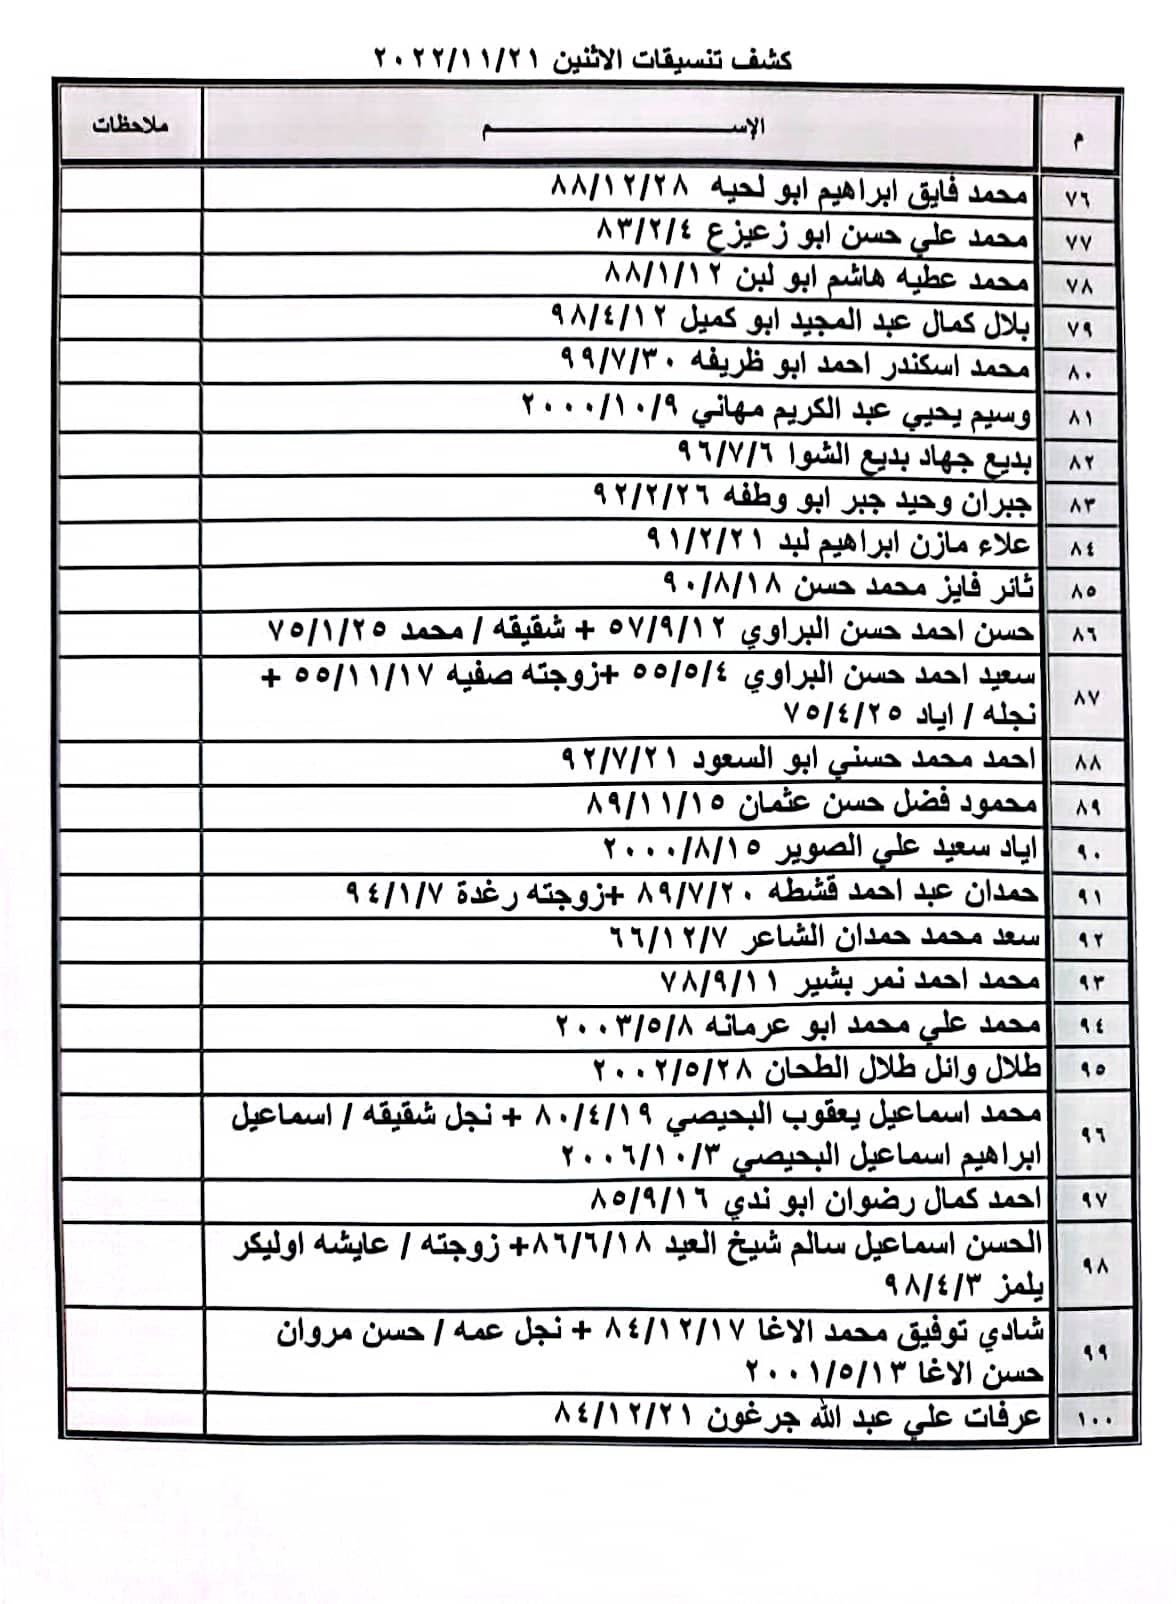 كشف تنسيقات الاثنين ٢٠٢٢/١١/٢١
م الإســـــــــم ملاحظات
٧٦ محمد فايق ابراهيم ابو لحيه ٨٨/١٢/٢٨
٧٧ محمد علي حسن ابو زعيزع ٨٣/٢/٤
٧٨ محمد عطيه هاشم ابو لبن ٨٨/١/١٢
٧٩ بلال كمال عبد المجيد ابو كميل ٩٨/٤/١٢
٨٠ محمد اسكندر احمد ابو ظريفه ٩٩/٧/٣٠
٨١ وسيم يحيي عبد الكريم مهاني ٢٠٠٠/١٠/٩
٨٢ بديع جهاد بديع الشوا ٩٦/٧/٦
٨٣ جبران وحيد جبر ابو وطفه ٩٢/٢/٢٦
٨٤ علاء مازن ابراهيم لبد ٩١/٢/٢١
٨٥ ثائر فايز محمد حسن ٩٠/٨/١٨
٨٦ حسن احمد حسن البراوي ٥٧/٩/١٢ + شقيقه / محمد ٧٥/١/٢٥
٨٧ سعيد احمد حسن البراوي ٥٥/٥/٤ +زوجته صفيه ٥٥/١١/١٧ +
نجله / اياد ٧٥/٤/٢٥
٨٨ احمد محمد حسني ابو السعود ٩٢/٧/٢١
٨٩ محمود فضل حسن عثمان ٨٩/١١/١٥
٩٠ اياد سعيد علي الصوير ٢٠٠٠/٨/١٥
٩١ حمدان عبد احمد قشطه ٨٩/٧/٢٠ +زوجته رغدة ٩٤/١/٧
٩٢ سعد محمد حمدان الشاعر ٦٦/١٢/٧
٩٣ محمد احمد نمر بشير ٧٨/٩/١١
٩٤ محمد علي محمد ابو عرمانه ٢٠٠٣/٥/٨
٩٥ طلال وائل طلال الطحان ٢٠٠٢/٥/٢٨
٩٦ محمد اسماعيل يعقوب البحيصي ٨٠/٤/١٩ + نجل شقيقه / اسماعيل
ابراهيم اسماعيل البحيصي ٢٠٠٦/١٠/٣
٩٧ احمد كمال رضوان ابو ندي ٨٥/٩/١٦
٩٨ الحسن اسماعيل سالم شيخ العيد ٨٦/٦/١٨+ زوجته / عايشه اوليكر
يلمز ٩٨/٤/٣
٩٩ شادي توفيق محمد الاغا ٨٤/١٢/١٧ + نجل عمه / حسن مروان
حسن الاغا ٢٠٠١/٥/١٣
١٠٠ عرفات علي عبد الله جرغون ٨٤/١٢/٢١